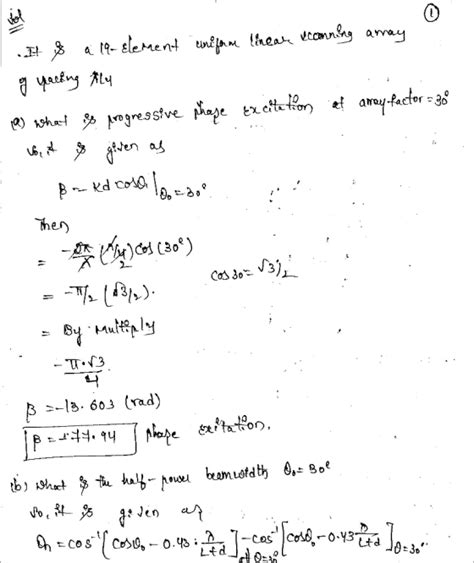 Sol
①
. It is a 19-element uniform linear scanning array
of spacing λ/4
(a) what is progressive phase excitation at array-factor = 30°
so, it is given as
β = -kd cosθ|θ₀=30°
Then
= -2π/λ (λ/4) cos(30°)
2
cos 30 = √3/2
= -π/2 (√3/2).
= By multiply
-π·√3/4
β = -13.603 (rad)
β = -77.94 phase excitation.
(b) what is the half-power beamwidth θ₀=30°
so, it is given as
θh = cos⁻¹[cosθ₀ - 0.43 · λ/L+d] - cos⁻¹[cosθ₀ - 0.43 λ/L+d] θ=30°
at θ=30°